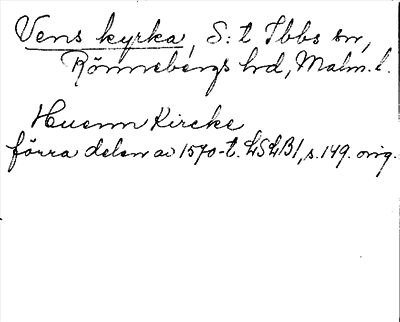 Vens kyrka, S:t Ibbs sn,
Rönnebergs hd, Malm. l.
Huenn Kircke
förra delen av 1570-t. LSLB1, s. 149. orig.